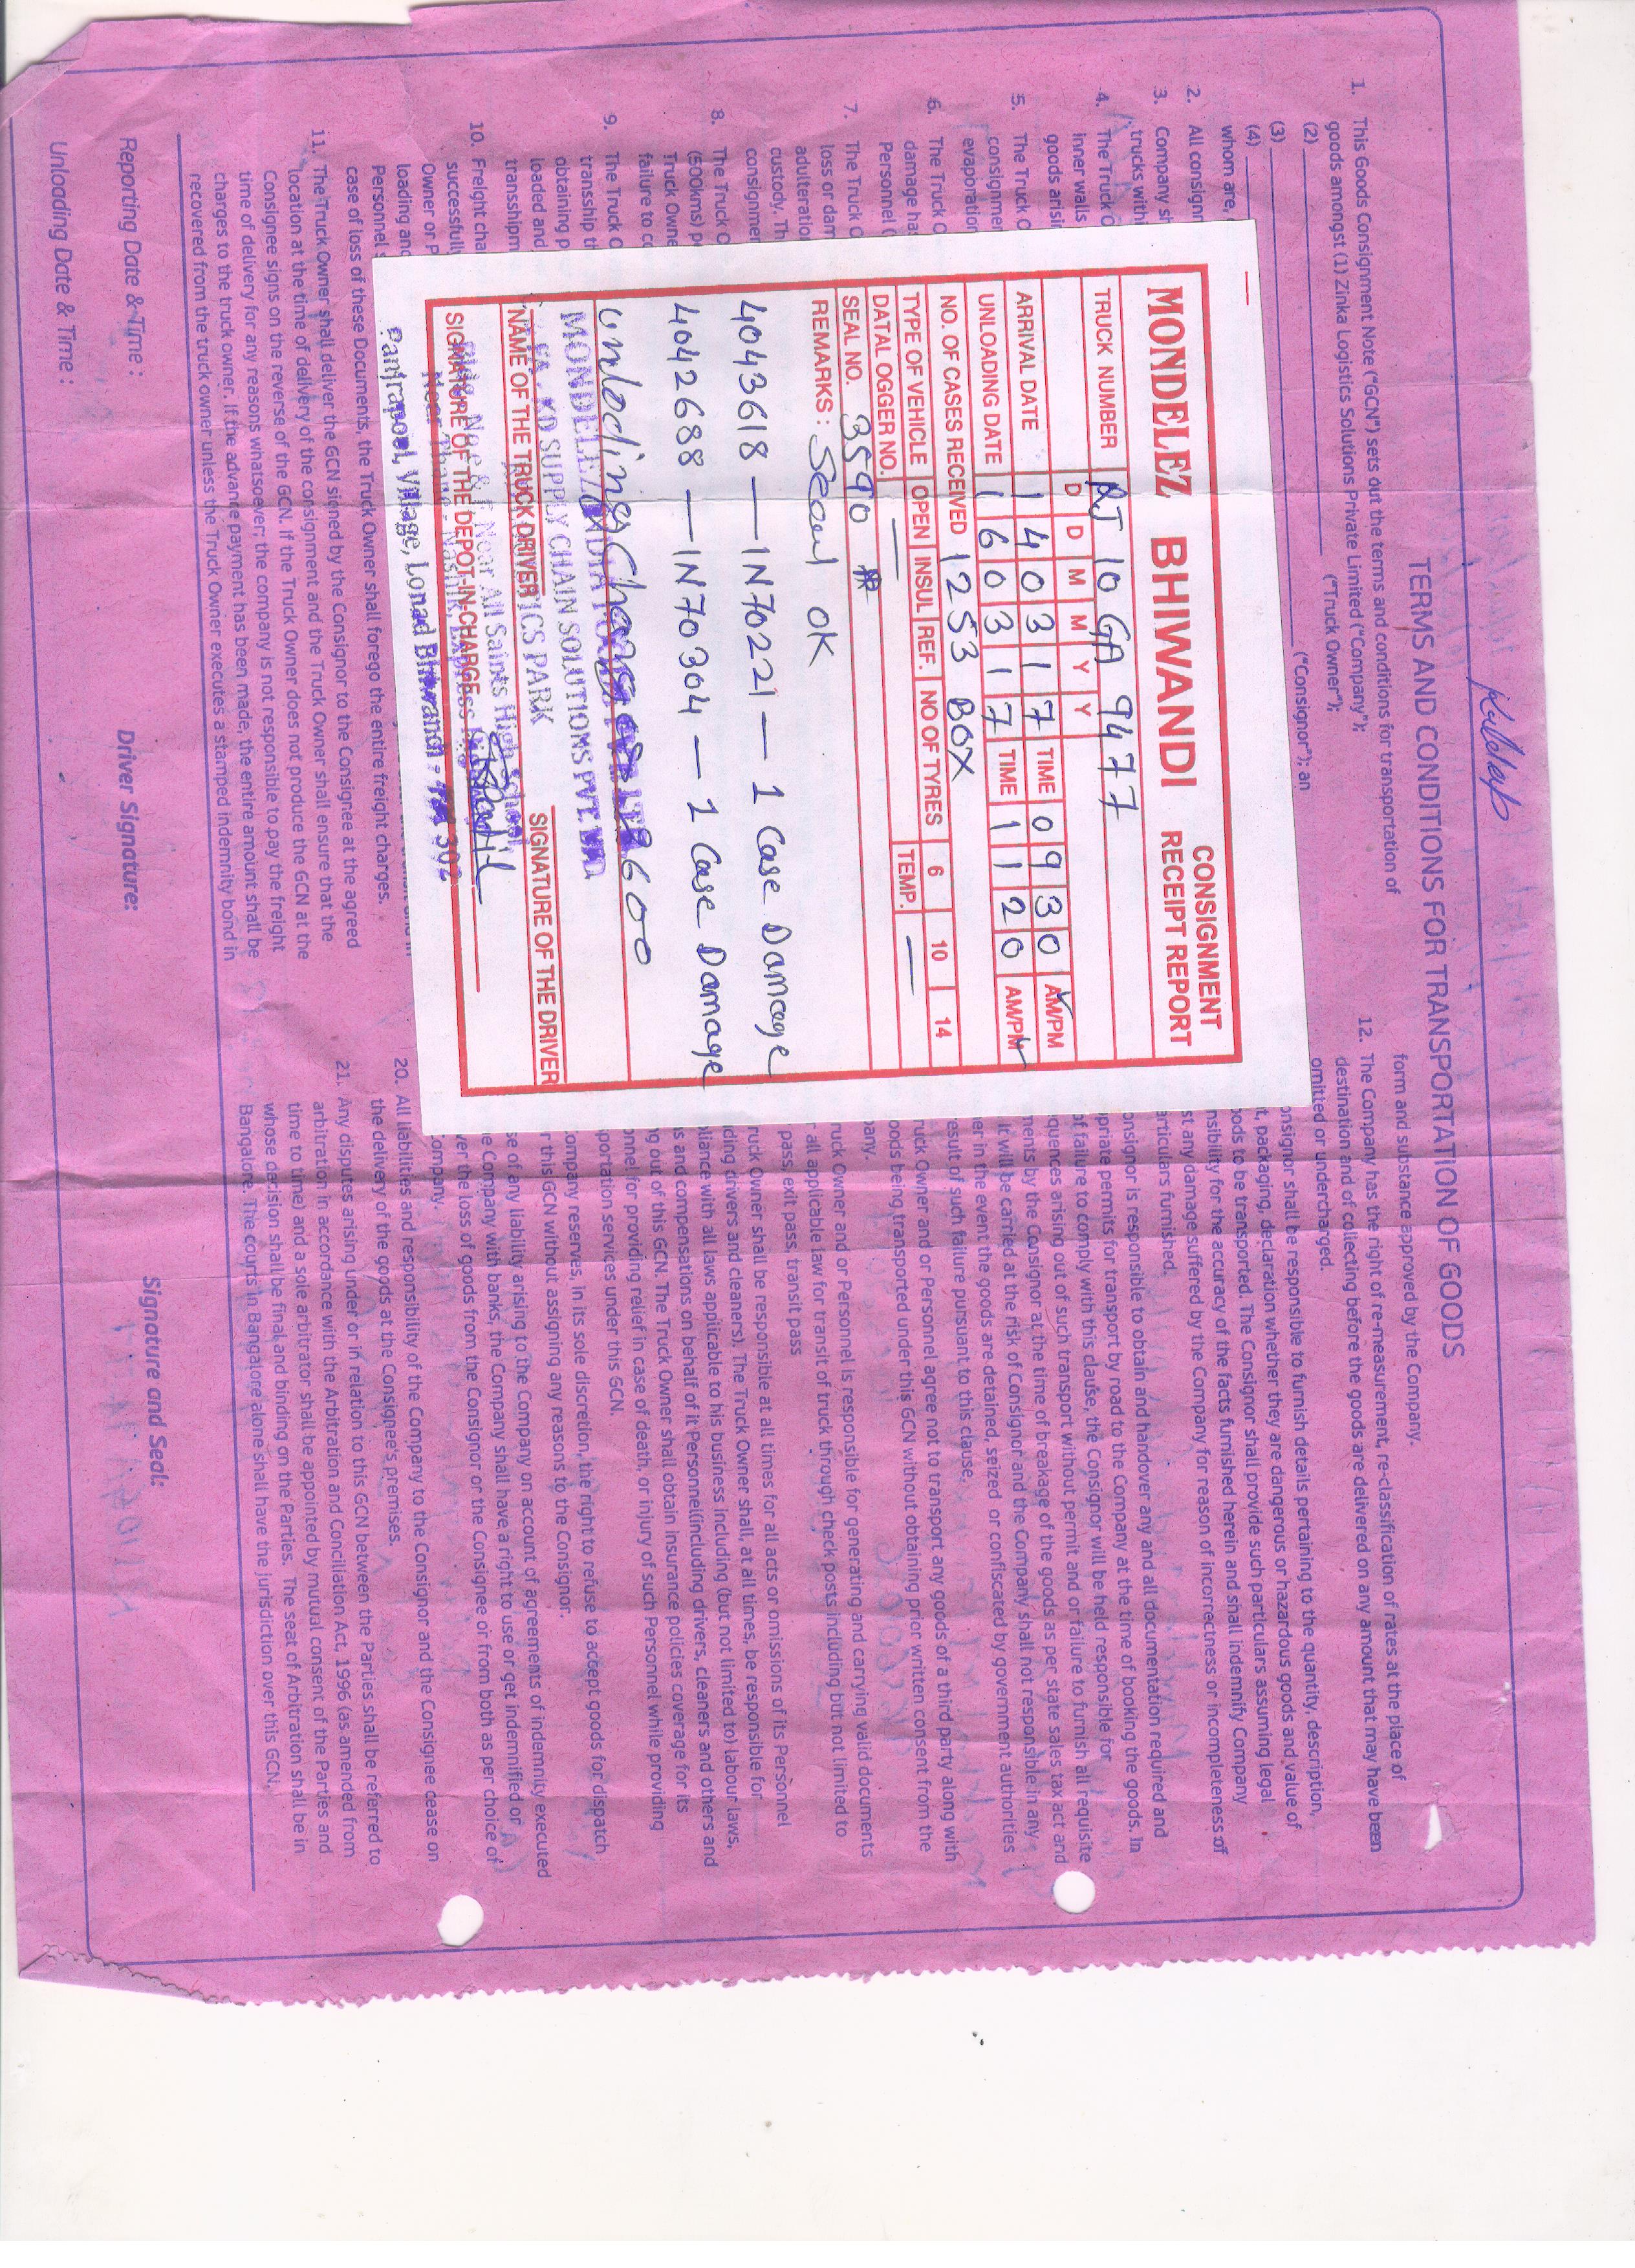 Kuldeep
TERMS AND CONDITIONS FOR TRANSPORTATION OF GOODS
1. This Goods Consignment Note ("GCN") sets out the terms and conditions for transportation of
goods amongst (1) Zinka Logistics Solutions Private Limited ("Company");
(2) ("Truck Owner");
(3) ("Consignor"); an
(4)
2. All consignr
whom are,
3. Company sh
trucks withi
4. The Truck O
inner walls
goods arisin
5. The Truck O
consignmen
evaporation
6. The Truck O
damage has
Personnel (
7. The Truck O
loss or dam
adulteration
custody. Th
consignmen
8. The Truck O
(500kms) p
Truck Owne
failure to co
9. The Truck O
transship th
obtaining p
loaded and
transshipm
10. Freight cha
successfull
Owner or P
loading and
Personnel s
case of loss of these Documents, the Truck Owner shall forego the entire freight charges.
11. The Truck Owner shall deliver the GCN signed by the Consignor to the Consignee at the agreed
location at the time of delivery of the consignment and the Truck Owner shall ensure that the
Consignee signs on the reverse of the GCN. If the Truck Owner does not produce the GCN at the
time of delivery for any reasons whatsoever; the company is not responsible to pay the freight
charges to the truck owner. If the advance payment has been made, the entire amount shall be
recovered from the truck owner unless the Truck Owner executes a stamped indemnity bond in
form and substance approved by the Company.
12. The Company has the right of re-measurement, re-classification of rates at the place of
destination and of collecting before the goods are delivered on any amount that may have been
omitted or undercharged.
onsignor shall be responsible to furnish details pertaining to the quantity, description,
t, packaging, declaration whether they are dangerous or hazardous goods and value of
oods to be transported. The Consignor shall provide such particulars assuming legal
nsibility for the accuracy of the facts furnished herein and shall indemnify Company
st any damage suffered by the Company for reason of incorrectness or incompleteness of
articulars furnished.
onsignor is responsible to obtain and handover any and all documentation required and
priate permits for transport by road to the Company at the time of booking the goods. In
of failure to comply with this clause, the Consignor will be held responsible for
quences arising out of such transport without permit and or failure to furnish all requisite
ments by the Consignor at the time of breakage of the goods as per state sales tax act and
it will be carried at the risk of Consignor and the Company shall not responsible in any
er in the event the goods are detained, seized or confiscated by government authorities
esult of such failure pursuant to this clause.
ruck Owner and or Personnel agree not to transport any goods of a third party along with
oods being transported under this GCN without obtaining prior written consent from the
pany.
ruck Owner and or Personnel is responsible for generating and carrying valid documents
r all applicable law for transit of truck through check posts including but not limited to
pass, exit pass, transit pass
ruck Owner shall be responsible at all times for all acts or omissions of its Personnel
ding drivers and cleaners). The Truck Owner shall, at all times, be responsible for
liance with all laws applicable to his business including (but not limited to) labour laws,
s and compensations on behalf of it Personnel(including drivers, cleaners and others and
g out of this GCN. The Truck Owner shall obtain insurance policies coverage for its
onnel for providing relief in case of death, or injury of such Personnel while providing
portation services under this GCN.
ompany reserves, in its sole discretion, the right to refuse to accept goods for dispatch
r this GCN without assigning any reasons to the Consignor.
se of any liability arising to the Company on account of agreements of indemnity executed
e Company with banks, the Company shall have a right to use or get indemnified or
ver the loss of goods from the Consignor or the Consignee or from both as per choice of
ompany.
20. All liabilities and responsibility of the Company to the Consignor and the Consignee cease on
the delivery of the goods at the Consignee's premises.
21. Any disputes arising under or in relation to this GCN between the Parties shall be referred to
arbitration in accordance with the Arbitration and Conciliation Act, 1996 (as amended from
time to time) and a sole arbitrator shall be appointed by mutual consent of the Parties and
whose decision shall be final and binding on the Parties. The seat of Arbitration shall be in
Bangalore. The courts in Bangalore alone shall have the jurisdiction over this GCN.
Reporting Date & Time : Driver Signature: Signature and Seal:
Unloading Date & Time :
MONDELEZ BHIWANDI CONSIGNMENT
RECEIPT REPORT
TRUCK NUMBER RJ 10 GA 9477
D D M M Y Y
ARRIVAL DATE 1 4 0 3 1 7 TIME 0 9 3 0 AM/PM
UNLOADING DATE 1 6 0 3 1 7 TIME 1 1 2 0 AM/PM
NO. OF CASES RECEIVED 1253 BOX
TYPE OF VEHICLE OPEN INSUL REF. NO OF TYRES 6 10 14
DATAL OGGER NO. — TEMP. —
SEAL NO. 3590 #
REMARKS : Seal OK
4043618 — IN70221 — 1 Case Damage
4042688 — IN70304 — 1 Case Damage
Unloding Charge 8600
MONDELEZ INDIA FOODS PVT LTD
KD SUPPLY CHAIN SOLUTIONS PVT
NAME OF THE TRUCK DRIVER SIGNATURE OF THE DRIVER
LOGISTICS PARK
Near All Saints High School
SIGNATURE OF THE DEPOT-IN-CHARGE Patil
Near Thane - Nashik Express
Village, Lonad Bhiwandi - 302